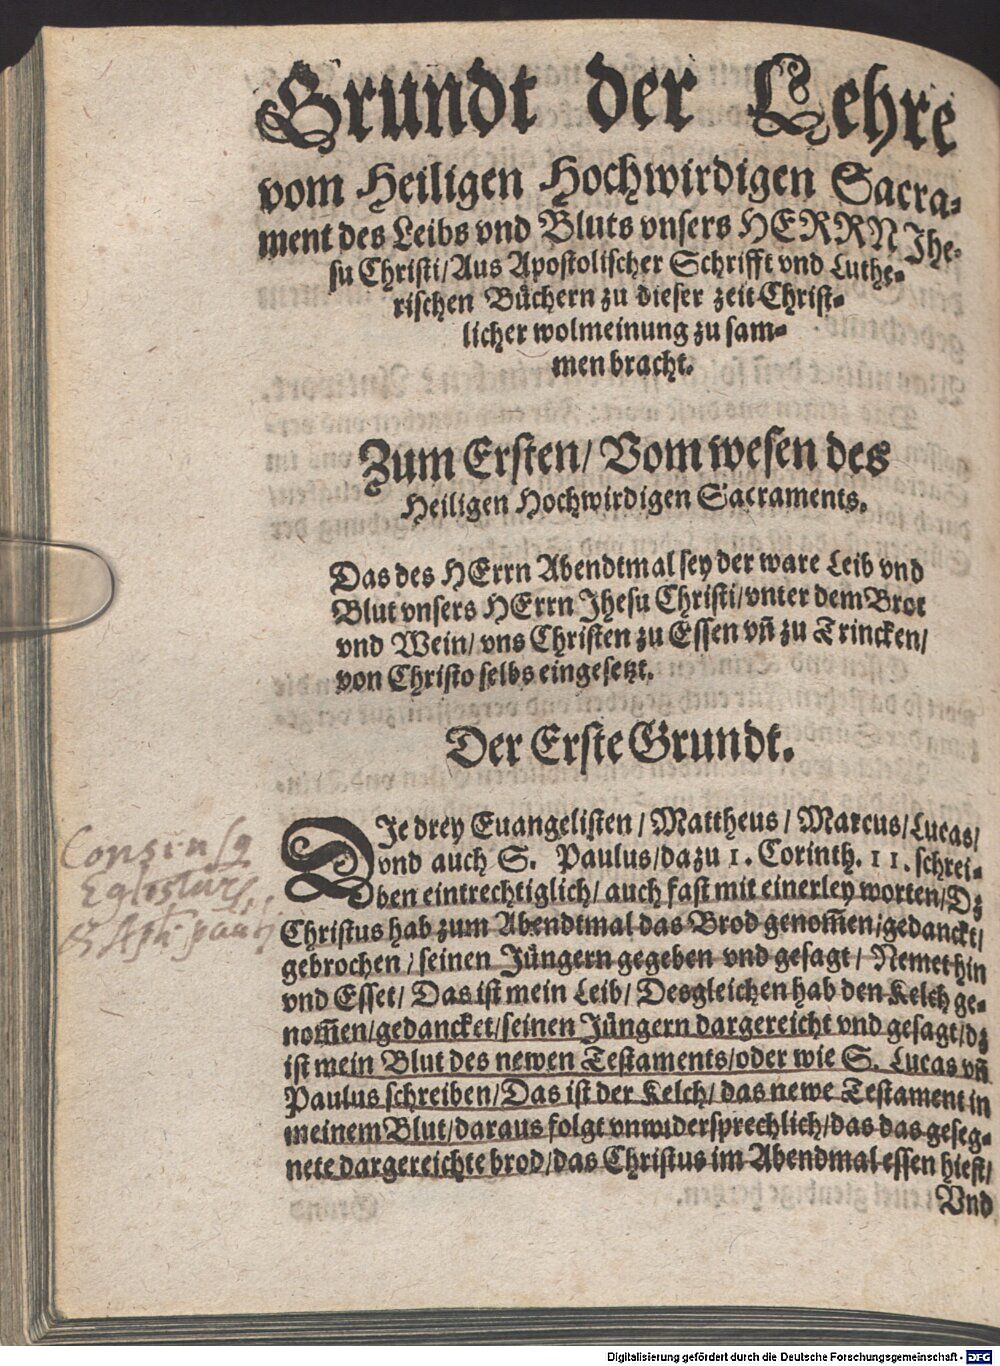 Grundt der Lehre
vom Heiligen Hochwirdigen Sacra-
ment des Leibs vnd Bluts vnsers HERRN Jhe-
su Christi/Aus Apostolischer Schrifft vnd Luthe-
rischen Büchern zu dieser zeit Christ-
licher wolmeinung zu sam-
men bracht.
Zum Ersten/ Vom wesen des
Heiligen Hochwirdigen Sacraments.
Das des HErrn Abendtmal sey der ware Leib vnd
Blut vnsers HErrn Jhesu Christi/vnter dem Brot
vnd Wein/ vns Christen zu Essen vñ zu Trincken/
von Christo selbs eingesetzt.
Der Erste Grundt.
DJe drey Euangelisten / Mattheus / Marcus/Lucas/
vnd auch S. Paulus/dazu 1. Corinth. 11. schrei-
ben eintrechtiglich/ auch fast mit einerley worten/Dz
Christus hab zum Abendtmal das Brod genom̃en/gedanckt/
gebrochen / seinen Jüngern gegeben vnd gesagt / Nemet hin
vnd Esset/ Das ist mein Leib/ Desgleichen hab den Kelch ge-
nom̃en/gedancket/seinen Jüngern dargereicht vnd gesagt/dz
ist mein Blut des newen Testaments/oder wie S. Lucas vñ
Paulus schreiben/Das ist der Kelch/ das newe Testament in
meinem Blut/daraus folgt vnwidersprechlich/das das geseg-
nete dargereichte brod/das Christus im Abendmal essen hiest/
Vnd
Digitalisierung gefördert durch die Deutsche Forschungsgemeinschaft - DFG